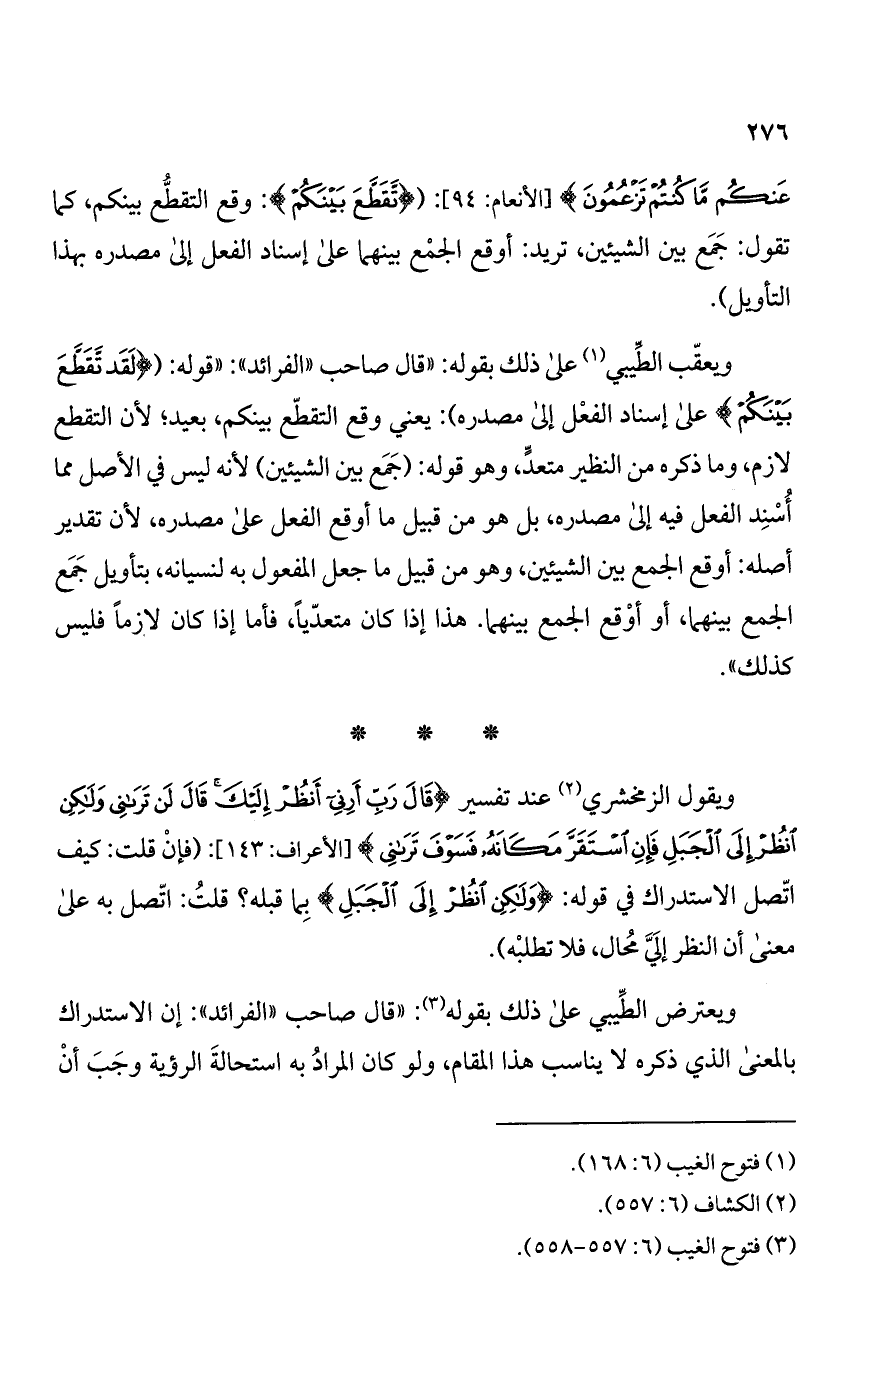 ٢٧٦
عَنكُم مَّا كُنتُمْ تَزْعُمُونَ ﴾ [الأنعام: ٩٤]: (﴿تَّقَطَّعَ بَيْنَكُمْ﴾: وقع التقطُّع بينكم، كما
تقول: جَمَع بين الشيئين، تريد: أوقع الجمْع بينهما علىٰ إسناد الفعل إلىٰ مصدره بهذا
التأويل).
ويعقّب الطِّيبي(١) علىٰ ذلك بقوله: «قال صاحب «الفرائد»: «قوله: (﴿لَقَد تَّقَطَّعَ
بَيْنَكُمْ﴾ علىٰ إسناد الفعْل إلىٰ مصدره): يعني وقع التقطّع بينكم، بعيد؛ لأن التقطع
لازم، وما ذكره من النظير متعدٍّ، وهو قوله: (جَمَع بين الشيئين) لأنه ليس في الأصل مما
أُسْنِد الفعل فيه إلىٰ مصدره، بل هو من قبيل ما أوقع الفعل علىٰ مصدره، لأن تقدير
أصله: أوقع الجمع بين الشيئين، وهو من قبيل ما جعل المفعول به لنسيانه، بتأويل جَمَع
الجمع بينهما، أو أوْقع الجمع بينهما. هذا إذا كان متعدّياً، فأما إذا كان لازماً فليس
كذلك».
* * *
ويقول الزمخشري(٢) عند تفسير ﴿قَالَ رَبِّ أَرِنِيٓ أَنظُرْ إِلَيْكَ ۚ قَالَ لَن تَرَىٰنِي وَلَٰكِنِ
ٱنظُرْ إِلَى ٱلْجَبَلِ فَإِنِ ٱسْتَقَرَّ مَكَانَهُۥ فَسَوْفَ تَرَىٰنِي ﴾ [الأعراف: ١٤٣]: (فإنْ قلت: كيف
اتّصل الاستدراك في قوله: ﴿وَلَٰكِنِ ٱنظُرْ إِلَى ٱلْجَبَلِ﴾ بِما قبله؟ قلتُ: اتّصل به علىٰ
معنىٰ أن النظر إليَّ مُحال، فلا تطلبْه).
ويعترض الطِّيبي علىٰ ذلك بقوله(٣): «قال صاحب «الفرائد»: إن الاستدراك
بالمعنىٰ الذي ذكره لا يناسب هذا المقام، ولو كان المرادُ به استحالةَ الرؤية وجَبَ أنْ
(١) فتوح الغيب (٦: ١٦٨).
(٢) الكشاف (٦: ٥٥٧).
(٣) فتوح الغيب (٦: ٥٥٧-٥٥٨).